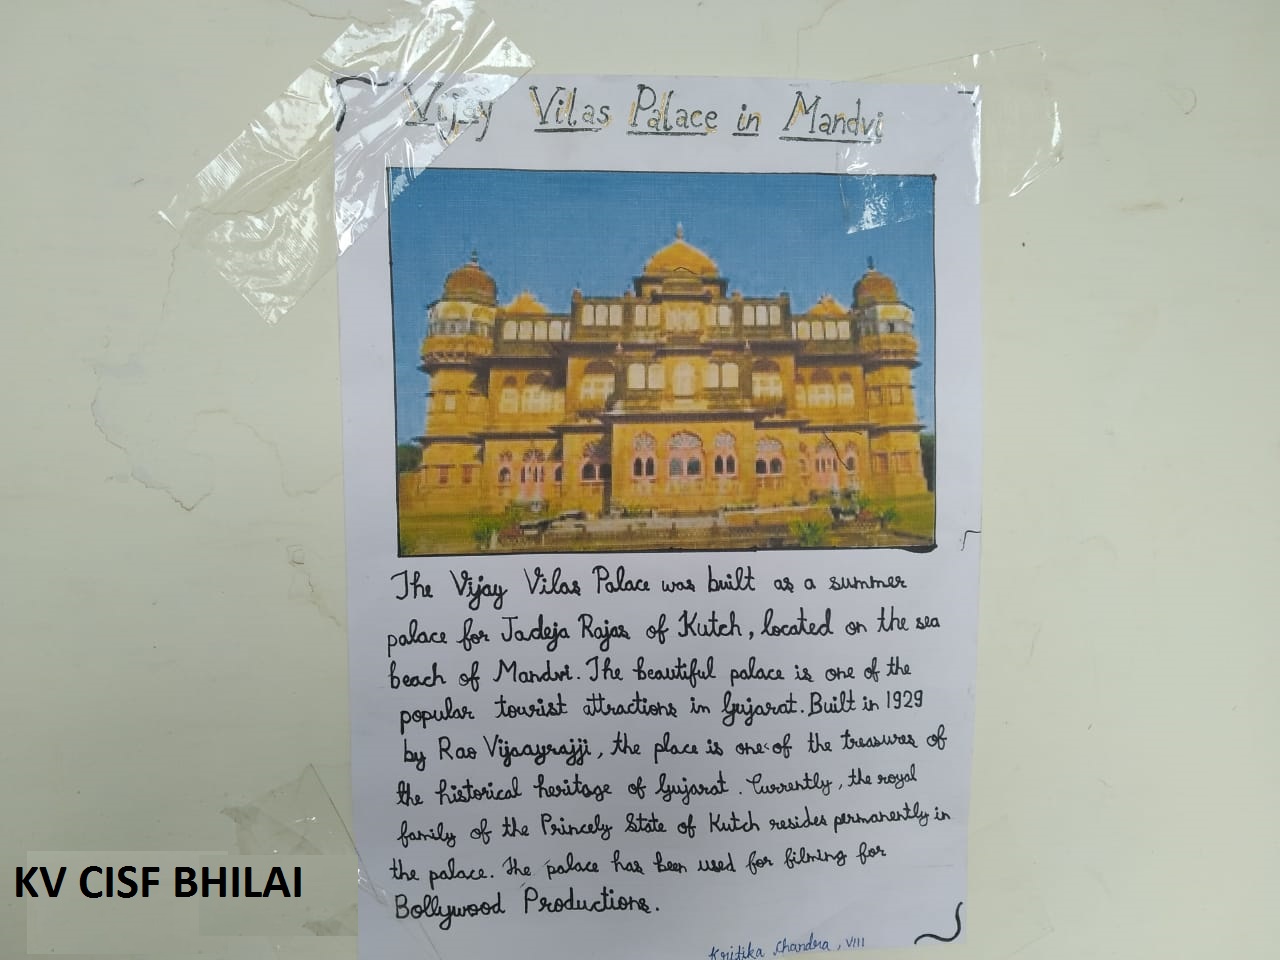 Vijay Vilas Palace in Mandvi
The Vijay Vilas Palace was built as a summer
palace for Jadeja Rajas of Kutch, located on the sea
beach of Mandvi. The beautiful palace is one of the
popular tourist attractions in Gujarat. Built in 1929
by Rao Vijaayrajji, the place is one of the treasures of
the historical heritage of Gujarat. Currently, the royal
family of the Princely State of Kutch resides permanently in
the palace. The palace has been used for filming for
Bollywood Productions.
Kritika Chandra, VIII
KV CISF BHILAI